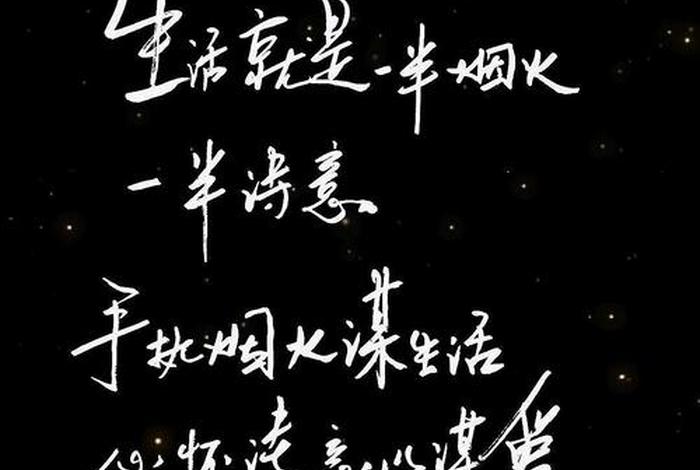 生活就是一半烟火
一半诗意
手执烟火谋生活
心怀诗意以谋爱